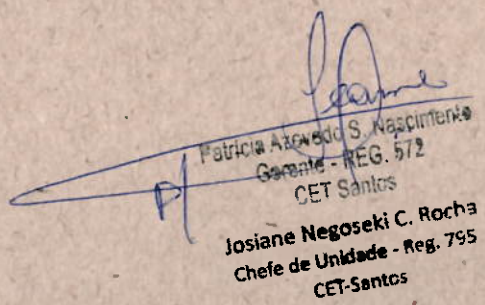 Patricia Azevedo S. Nascimento
Gerente - REG. 572
CET Santos
p/
Josiane Negoseki C. Rocha
Chefe de Unidade - Reg. 795
CET-Santos